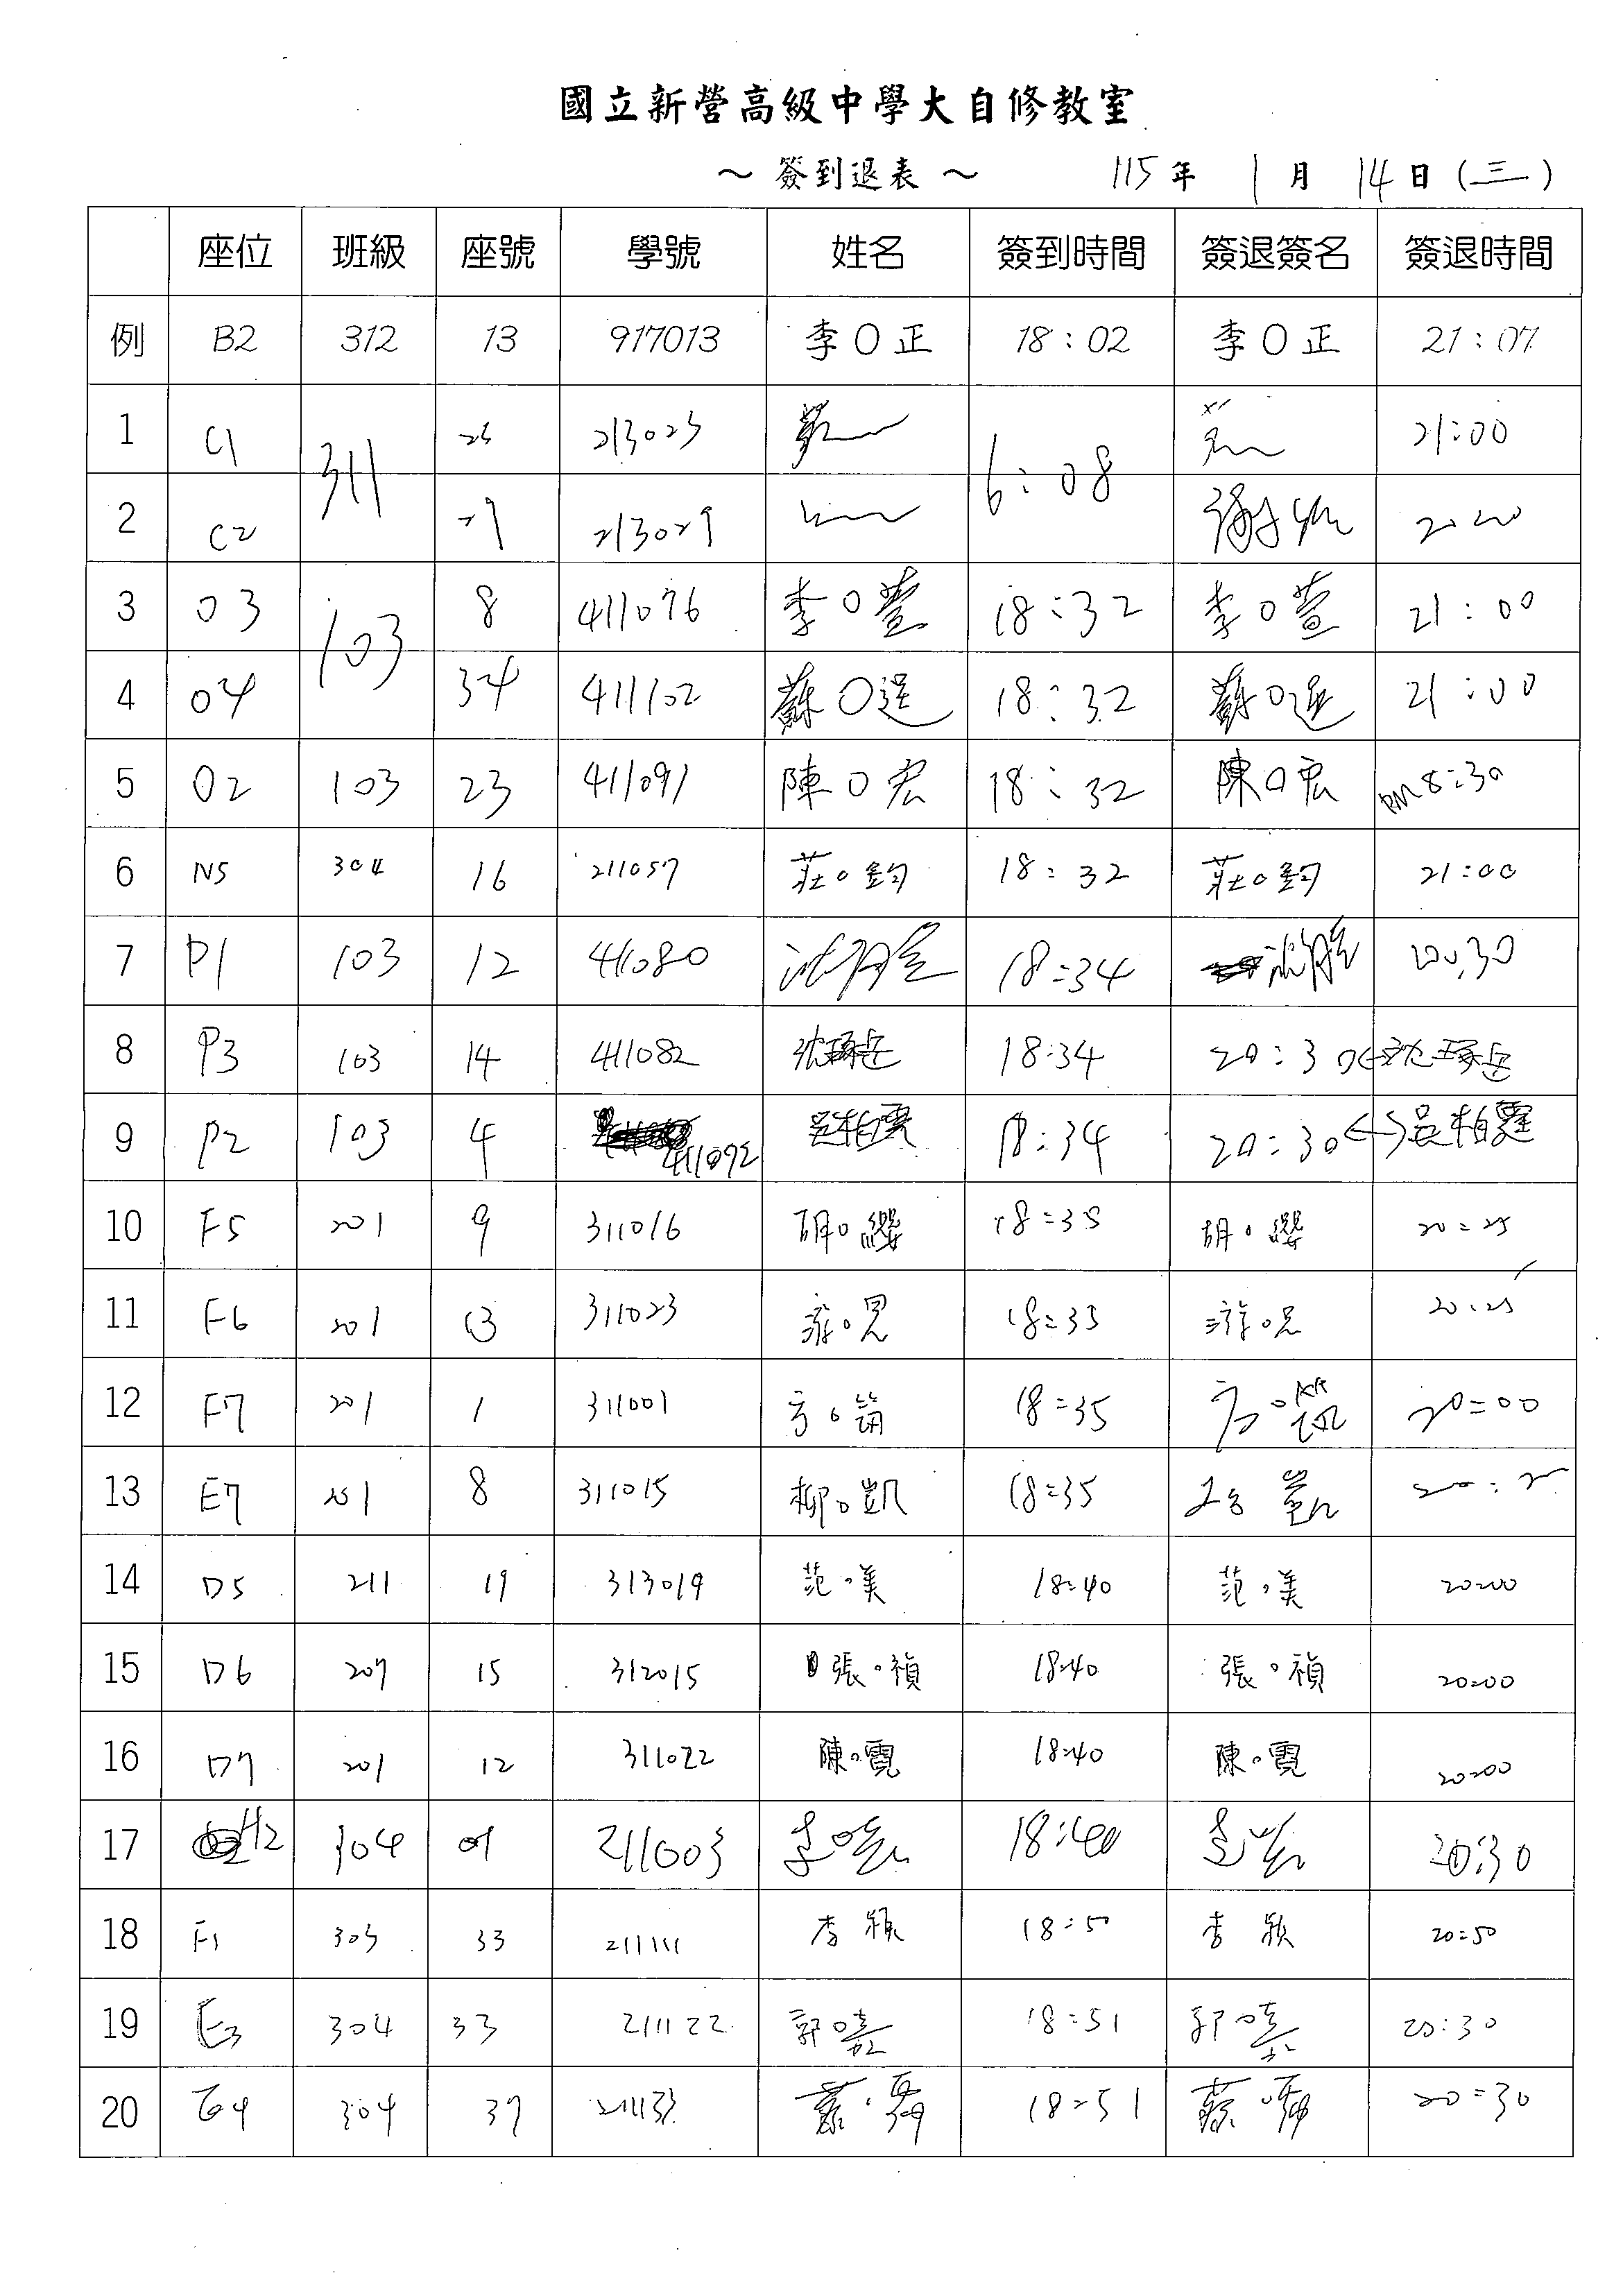 國立新營高級中學大自修教室
～ 簽到退表 ～ 115 年 1 月 14 日 (三)
座位 班級 座號 學號 姓名 簽到時間 簽退簽名 簽退時間
例 B2 312 13 917013 李O正 18:02 李O正 21:07
1 C1 311 23 213023 6:08 21:00
2 C2 29 213029 謝 2020
3 03 103 8 411076 李O萱 18:32 李O萱 21:00
4 04 34 411102 蘇O逞 18:32 蘇O逞 21:00
5 02 103 23 411091 陳O宏 18:32 陳O宏 PM8:30
6 N5 304 16 211057 莊O鈞 18:32 莊O鈞 21:00
7 P1 103 12 411080 沈 18:34 沈 20:30
8 P3 103 14 411082 沈琢岳 18:34 20:30 沈琢岳
9 P2 103 4 411092 吳柏霆 18:34 20:30 吳柏霆
10 F5 201 9 311016 胡O纓 18:35 胡O纓 20:25
11 F6 201 13 311023 游O恩 18:35 游O恩 20:25
12 F7 201 1 311001 方O筑 18:35 方O筑 20:00
13 E7 201 8 311015 柳O凱 18:35 20:2
14 D5 211 19 313019 范O美 18:40 范O美 20:00
15 D6 207 15 312015 張O禎 18:40 張O禎 20:00
16 D7 201 12 311022 陳O霓 18:40 陳O霓 20:00
17 H2 304 01 211003 李 18:40 李 20:30
18 F1 303 33 211111 李 穎 18:50 李 穎 20:50
19 E3 304 33 211122 郭O嘉 18:51 郭O嘉 20:30
20 E4 304 37 211133 蔡 18:51 蔡 20:30